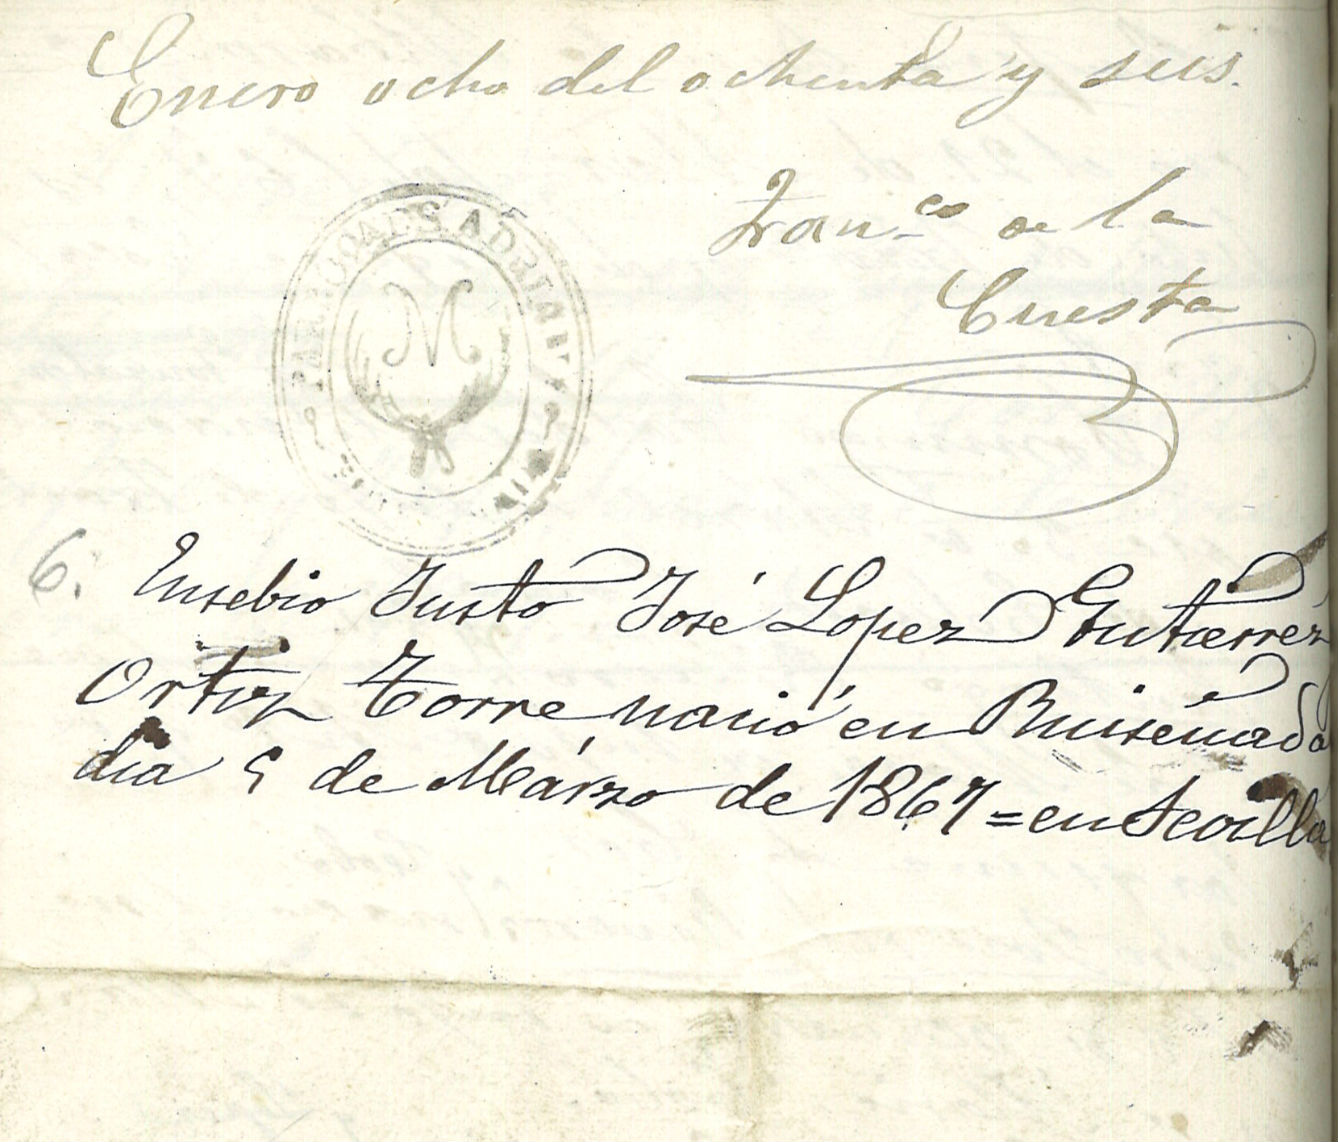 Enero ocho del ochenta y seis.
Fran.co de la
Cuesta
PARROQUIA DE S. ADRIAN
M
6. Eusebio Justo José Lopez Gutierrez
Ortiz Torre nació en Ruiseñada
dia 5 de Márzo de 1867 = en Sevilla